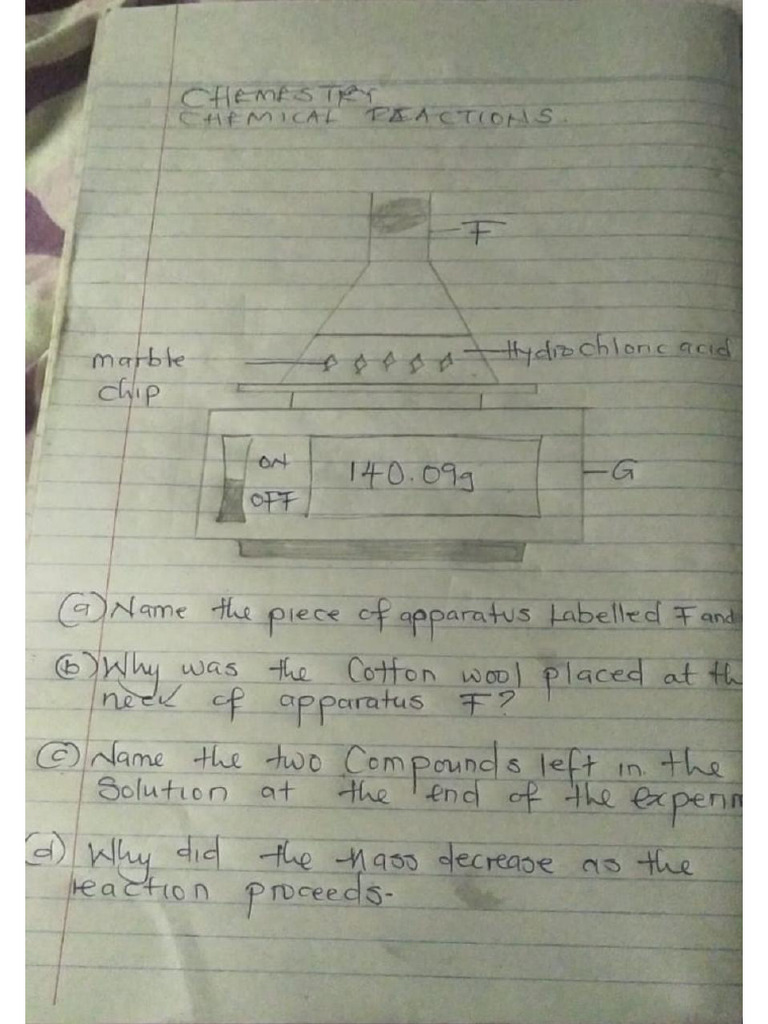 CHEMESTRY
CHEMICAL REACTIONS.
F
marble
chip
Hydrochloric acid
ON
OFF
140.09g
G
(a) Name the piece of apparatus Labelled F and
(b) Why was the Cotton wool placed at th
neck of apparatus F?
(c) Name the two Compounds left in the
Solution at the end of the experim
(d) Why did the Mass decrease as the
reaction proceeds-